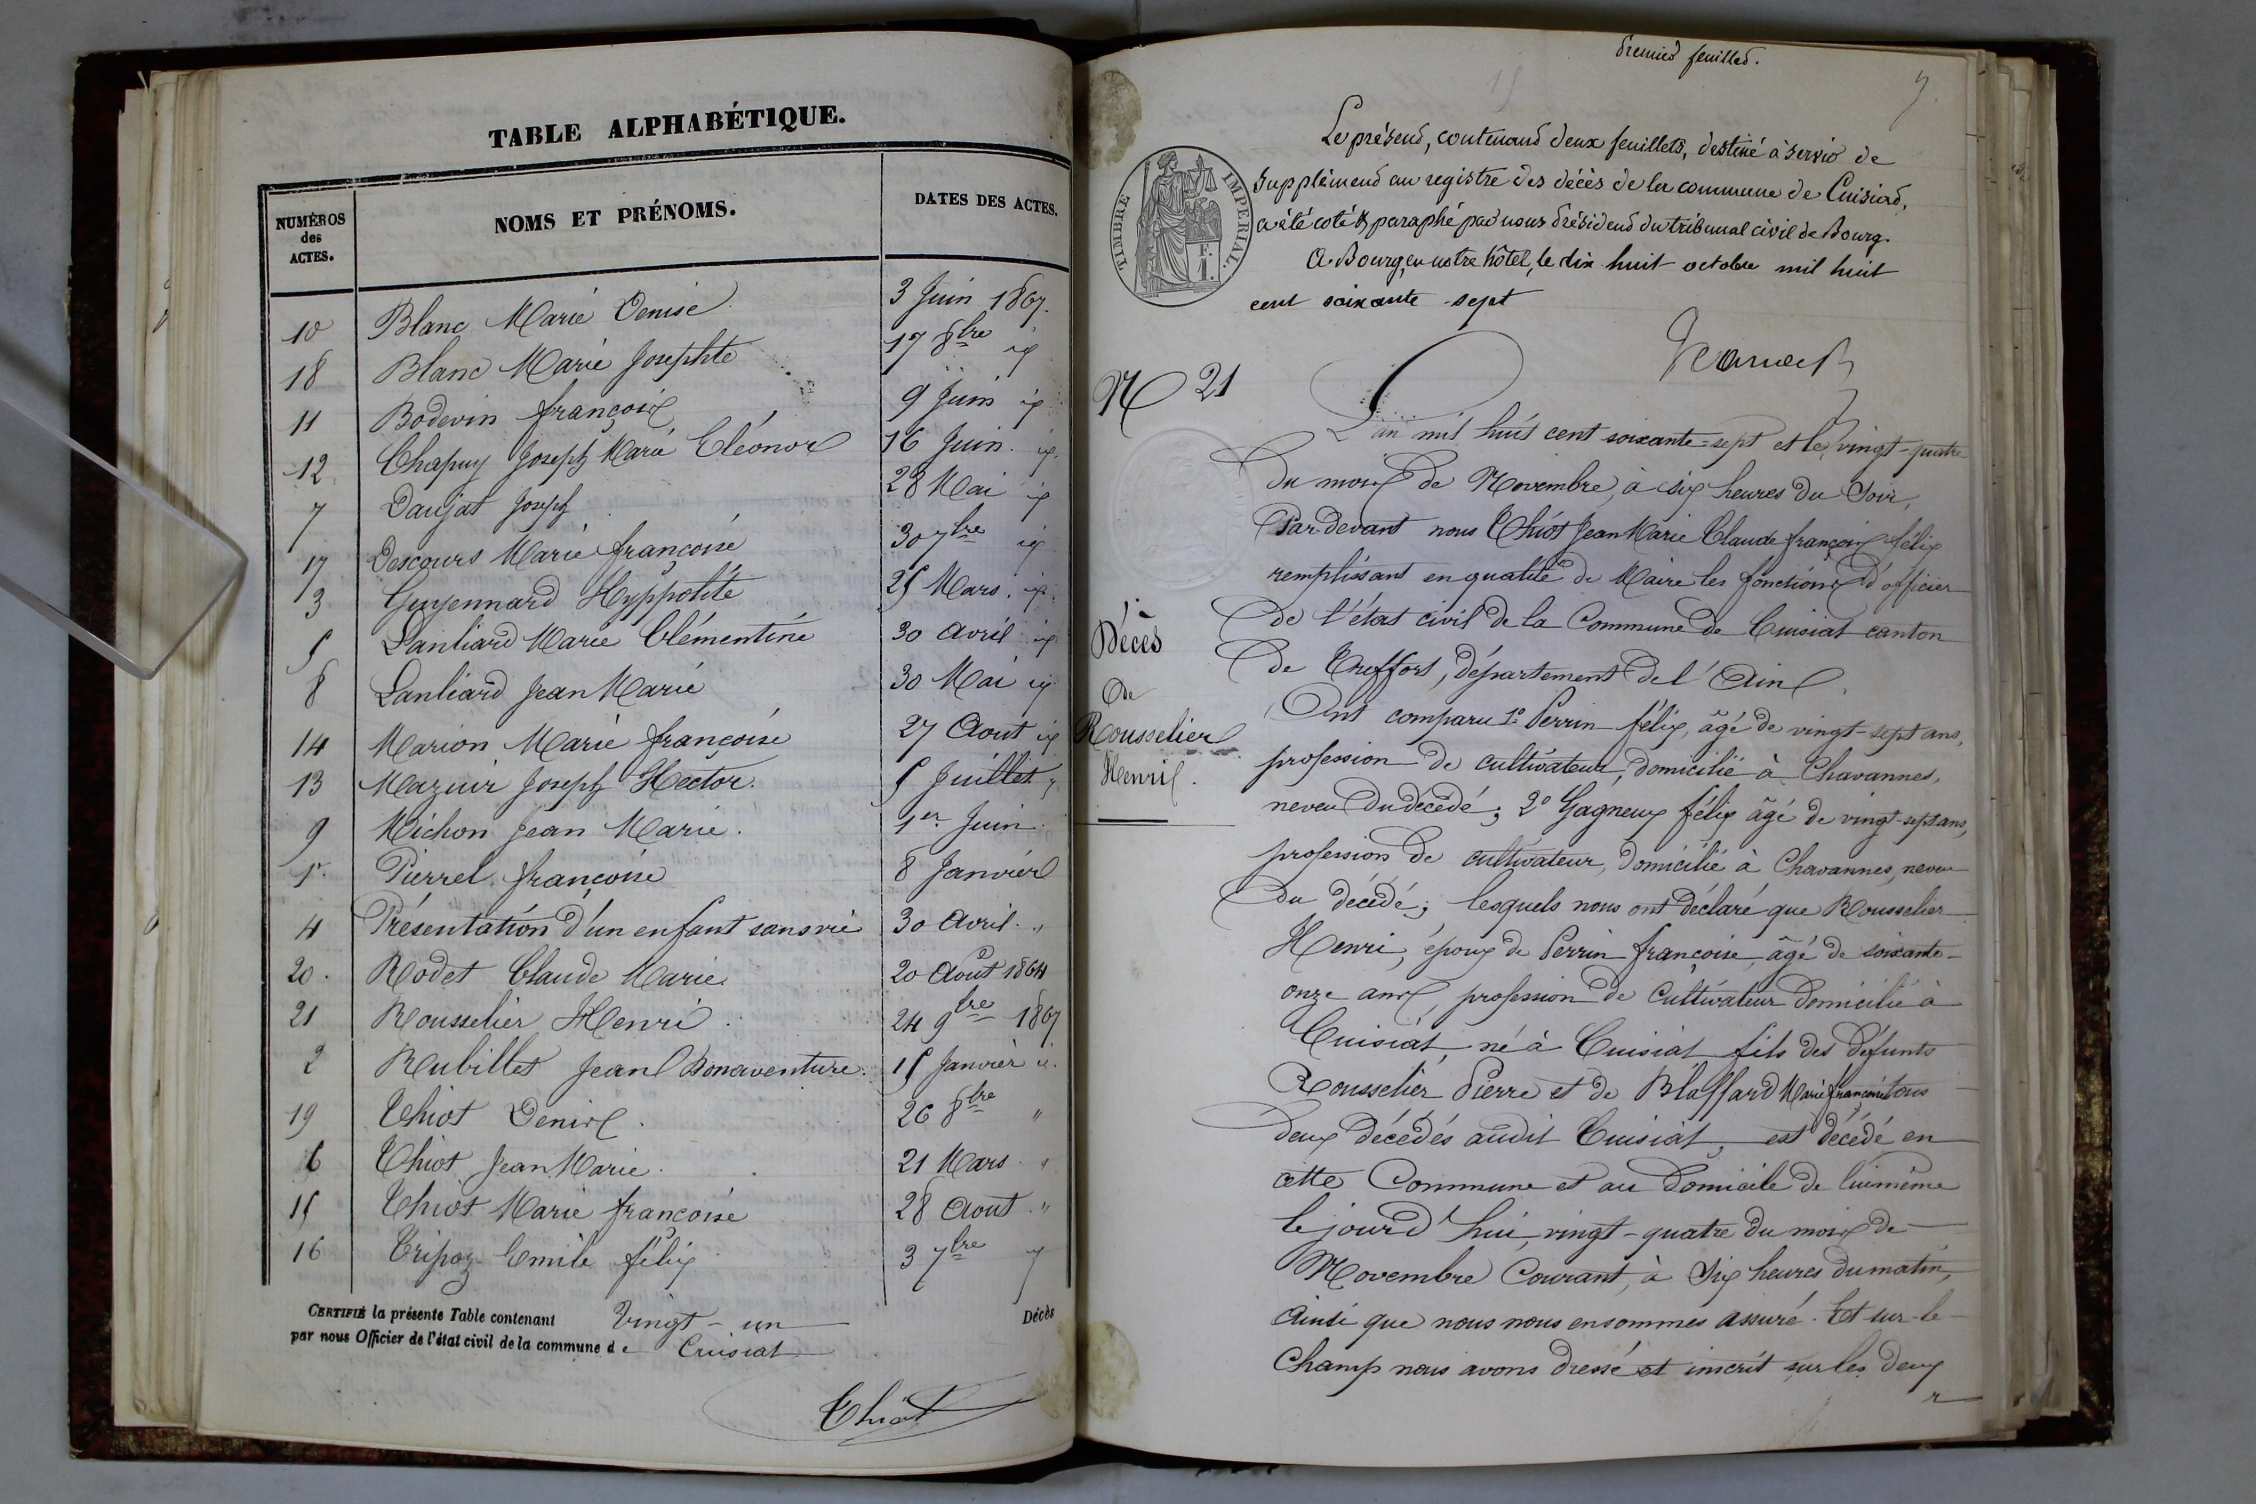 TABLE ALPHABÉTIQUE.
NUMÉROS des ACTES. NOMS ET PRÉNOMS. DATES DES ACTES.
10 Blanc Marie Denise 3 Juin 1867.
18 Blanc Marie Josephte 17 8bre id
11 Bodevin françois 9 Juin id
12 Chapuy Joseph Marie Eléonor 16 Juin id.
7 Daujat Joseph 28 Mai id
17 Descours Marie françoise 30 7bre id
3 Guyennard Hyppolite 25 Mars. id.
5 Lanliard Marie Clémentine 30 avril id
8 Lanliard Jean Marie 30 Mai id
14 Marion Marie françoise 27 Aout id
13 Mazuir Joseph Hector. 5 Juillet "
9 Michon Jean Marie. 1er Juin
1. Pierrel françoise 8 Janvier
4 Présentation d'un enfant sans vie 30 avril. "
20. Rodet Claude Marie 20 Août 1864
21 Rousselier Henri 24 9bre 1867
2 Rubillet Jean Bonaventure. 15 Janvier id.
19 Thiot Denis 26 8bre "
6 Thiot Jean Marie. 21 Mars "
15 Thiot Marie françoise 28 Aout "
16 Tripoz Emile félix 3 7bre "
CERTIFIÉ la présente Table contenant Vingt-un Décès
par nous Officier de l'état civil de la commune de Cuisiat
Thiot
Premier feuillet.
Le présent, contenant deux feuillets, destiné à servir de
supplément au registre des décès de la commune de Cuisiat,
a été coté & paraphé par nous Président du tribunal civil de Bourg.
A Bourg, en notre hôtel, le dix huit octobre mil huit
cent soixante sept
TIMBRE IMPÉRIAL.
F.
1.
N 21
Décès
de
Rousselier
Henri.
L'an mil huit cent soixante-sept et le vingt-quatre
du mois de Novembre, à six heures du Soir,
Par devant nous Thiot Jean Marie Claude françois félix
remplissant en qualité de Maire les fonctions d'officier
de l'état civil de la Commune de Cuisiat canton
de Treffort, département de l'Ain.
Ont comparu 1° Perrin félix, âgé de vingt-sept ans,
profession de cultivateur, domicilié à Chavannes,
neveu du décédé; 2° Gagneux félix âgé de vingt-sept ans,
profession de cultivateur, domicilié à Chavannes, neveu
du décédé; lesquels nous ont déclaré que Rousselier
Henri, époux de Perrin françoise, âgé de soixante-
onze ans, profession de Cultivateur domicilié à
Cuisiat, né à Cuisiat fils des défunts
Rousselier Pierre et de Blaffard Marie françoise tous
deux décédés audit Cuisiat, est décédé en
cette Commune et au domicile de lui même
le jourd'hui, vingt-quatre du mois de
Novembre Courant, à Six heures du matin,
ainsi que nous nous en sommes assuré. Et sur-le-
Champ nous avons dressé et inscrit sur les deux